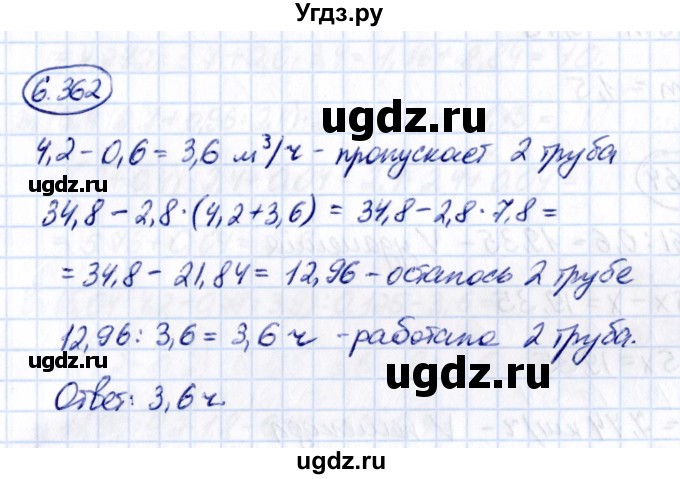 Угдз.ру
6.362
ugdz.ru
4,2 - 0,6 = 3,6 м³/ч - пропускает 2 труба
ugdz.ru
34,8 - 2,8 · (4,2 + 3,6) = 34,8 - 2,8 · 7,8 =
ugdz.ru
= 34,8 - 21,84 = 12,96 - осталось 2 трубе
12,96 : 3,6 = 3,6 ч - работала 2 труба.
ugdz.ru
ugdz.ru
Ответ: 3,6 ч.
ugdz.ru